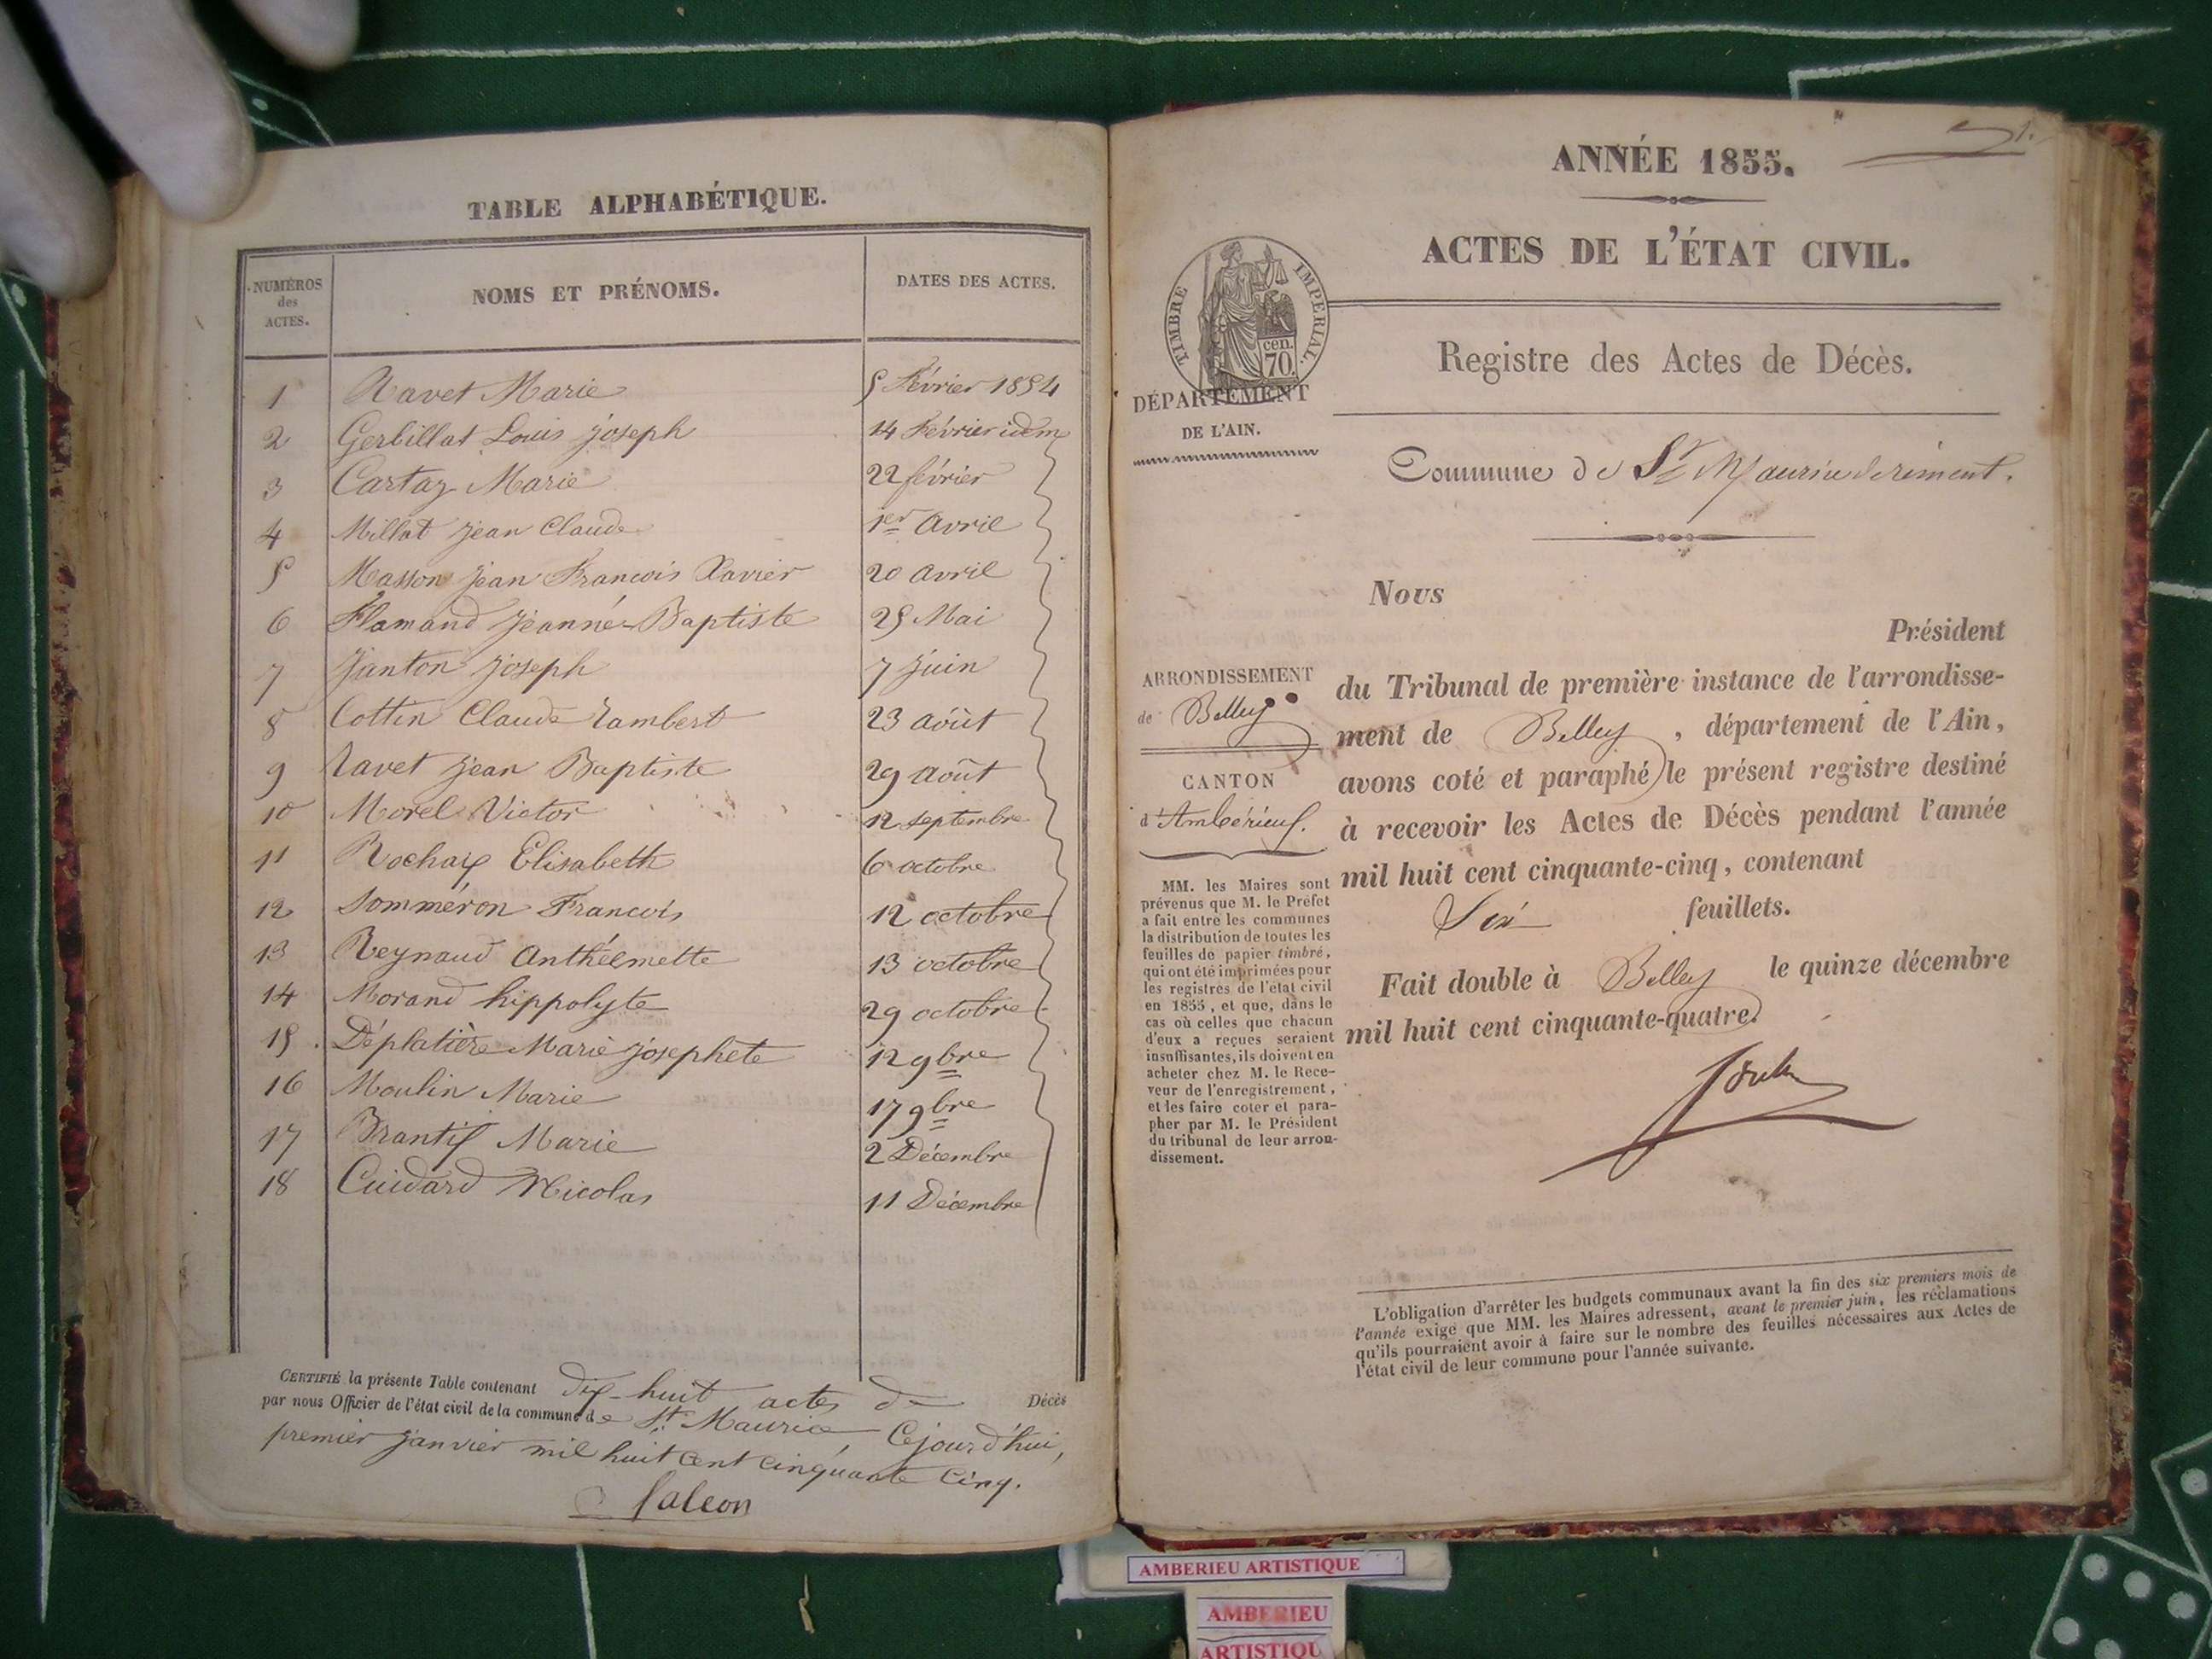 TABLE ALPHABÉTIQUE.
NUMÉROS des ACTES.
NOMS ET PRÉNOMS.
DATES DES ACTES.
1 Ravet Marie 5 Février 1854
2 Gerbillat Louis joseph 14 Février idem
3 Cartaz Marie 22 février
4 Millat jean Claude 1er avril
5 Masson jean Francois Xavier 20 avril
6 Flamand jeanne Baptiste 25 Mai
7 Janton joseph 7 juin
8 Cottin Claude Lambert 23 août
9 Ravet jean Baptiste 29 août
10 Morel Victor 12 septembre
11 Rochaix Elisabeth 6 octobre
12 Somméron Francois 12 octobre
13 Reynaud Anthéemette 13 octobre
14 Morand hippolyte 29 octobre
15 Déplatière Marie josephete 12 9bre
16 Moulin Marie 17 9bre
17 Brantix Marie 2 Décembre
18 Cuidard Nicolas 11 Décembre
CERTIFIÉ la présente Table contenant dix-huit actes de Décès
par nous Officier de l'état civil de la commune de St. Maurice, Cejourd'hui,
premier janvier mil huit cent cinquante cinq.
falcon
1.
ANNÉE 1855.
ACTES DE L'ÉTAT CIVIL.
TIMBRE IMPERIAL.
cen.
70.
Registre des Actes de Décès.
DÉPARTEMENT
DE L'AIN.
Commune de St Maurice de rément.
Nous
Président
du Tribunal de première instance de l'arrondisse-
ment de Belley, département de l'Ain,
avons coté et paraphé le présent registre destiné
à recevoir les Actes de Décès pendant l'année
mil huit cent cinquante-cinq, contenant
Six feuillets.
Fait double à Belley le quinze décembre
mil huit cent cinquante-quatre.
ARRONDISSEMENT
de Belley
CANTON
d'Ambérieux.
MM. les Maires sont
prévenus que M. le Préfet
a fait entre les communes
la distribution de toutes les
feuilles de papier timbré,
qui ont été imprimées pour
les registres de l'état civil
en 1855, et que, dans le
cas où celles que chacun
d'eux a reçues seraient
insuffisantes, ils doivent en
acheter chez M. le Rece-
veur de l'enregistrement,
et les faire coter et para-
pher par M. le Président
du tribunal de leur arron-
dissement.
L'obligation d'arrêter les budgets communaux avant la fin des six premiers mois de
l'année exige que MM. les Maires adressent, avant le premier juin, les réclamations
qu'ils pourraient avoir à faire sur le nombre des feuilles nécessaires aux Actes de
l'état civil de leur commune pour l'année suivante.
AMBERIEU ARTISTIQUE
AMBERIEU
ARTISTIQU